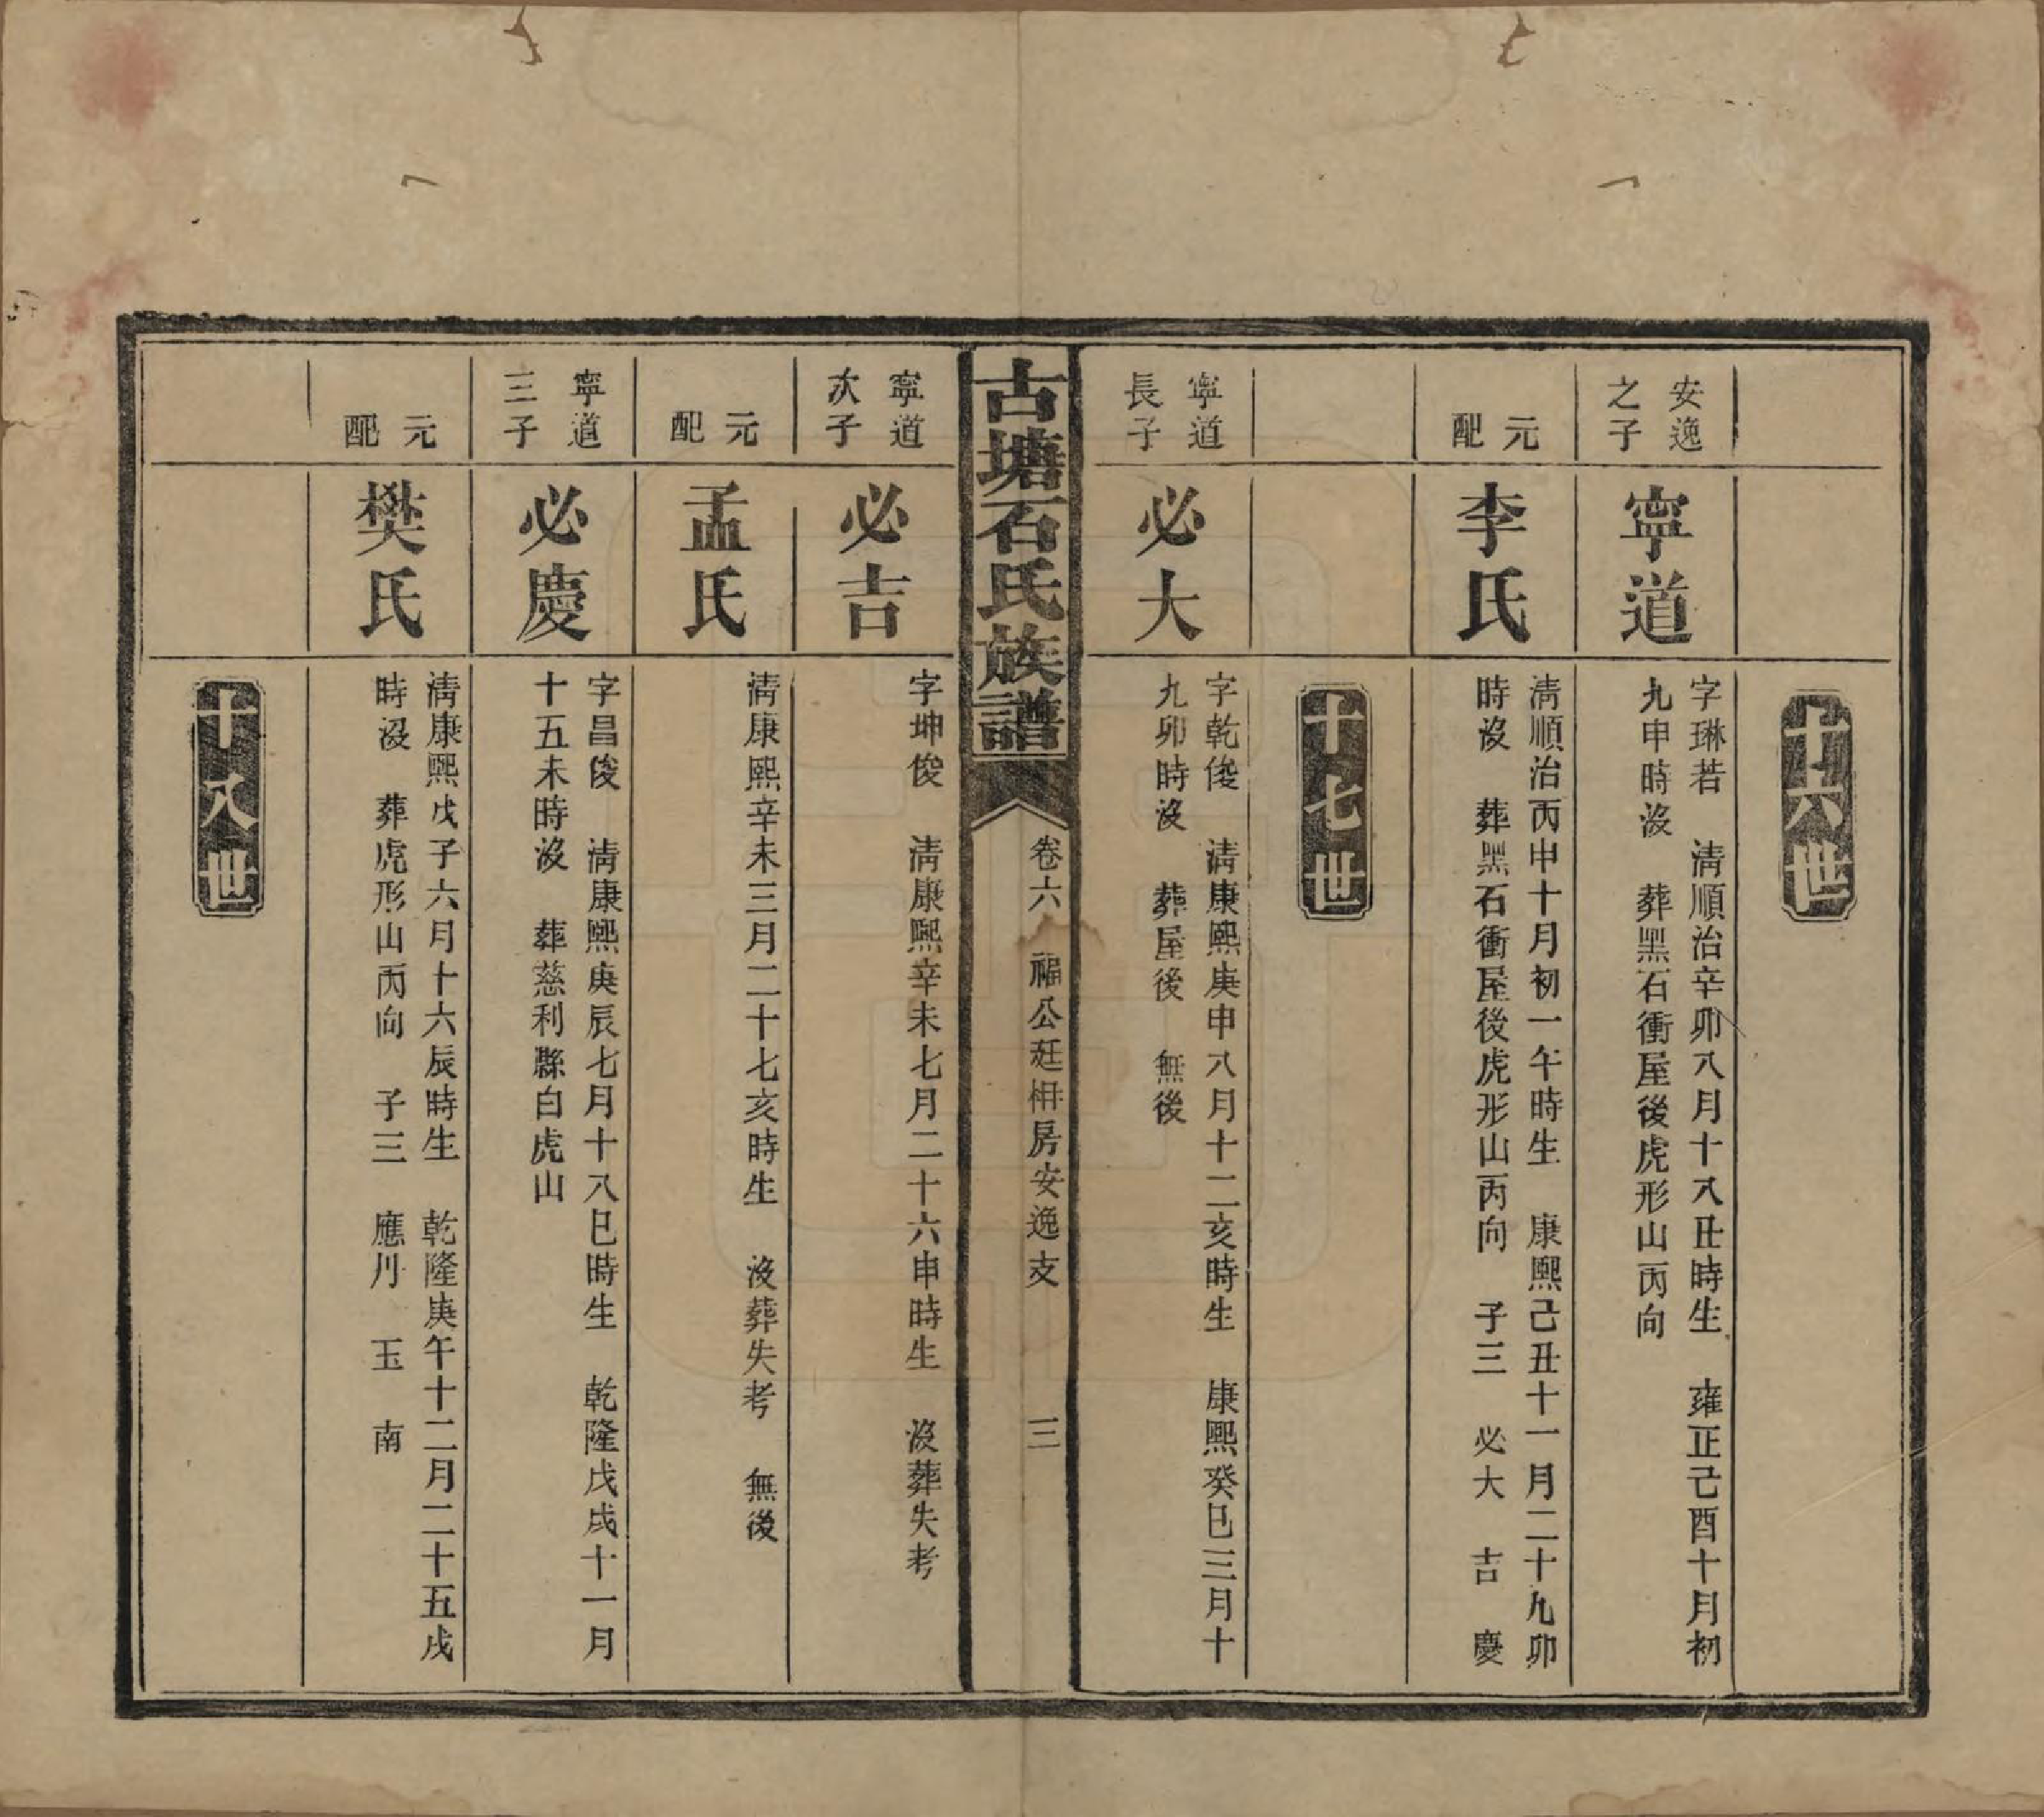 十六世
安逸
之子
寧道
字琳若　清順治辛卯八月十八丑時生　雍正己酉十月初
九申時沒　葬黑石衝屋後虎形山丙向
元配
李氏
清順治丙申十月初一午時生　康熙己丑十一月二十九卯
時沒　葬黑石衝屋後虎形山丙向　子三　必大　吉　慶
十七世
寧道
長子
必大
字乾俊　清康熙庚申八月十二亥時生　康熙癸巳三月十
九卯時沒　葬屋後　無後
古塘石氏族譜
卷六　福公廷枏房安逸支　三
寧道
次子
必吉
字坤俊　清康熙辛未七月二十六申時生　沒葬失考
元配
孟氏
清康熙辛未三月二十七亥時生　沒葬失考　無後
寧道
三子
必慶
字昌俊　清康熙庚辰七月十八巳時生　乾隆戊戌十一月
十五未時沒　葬慈利縣白虎山
元配
樊氏
清康熙戊子六月十六辰時生　乾隆庚午十二月二十五戌
時沒　葬虎形山丙向　子三　應月　玉　南
十八世